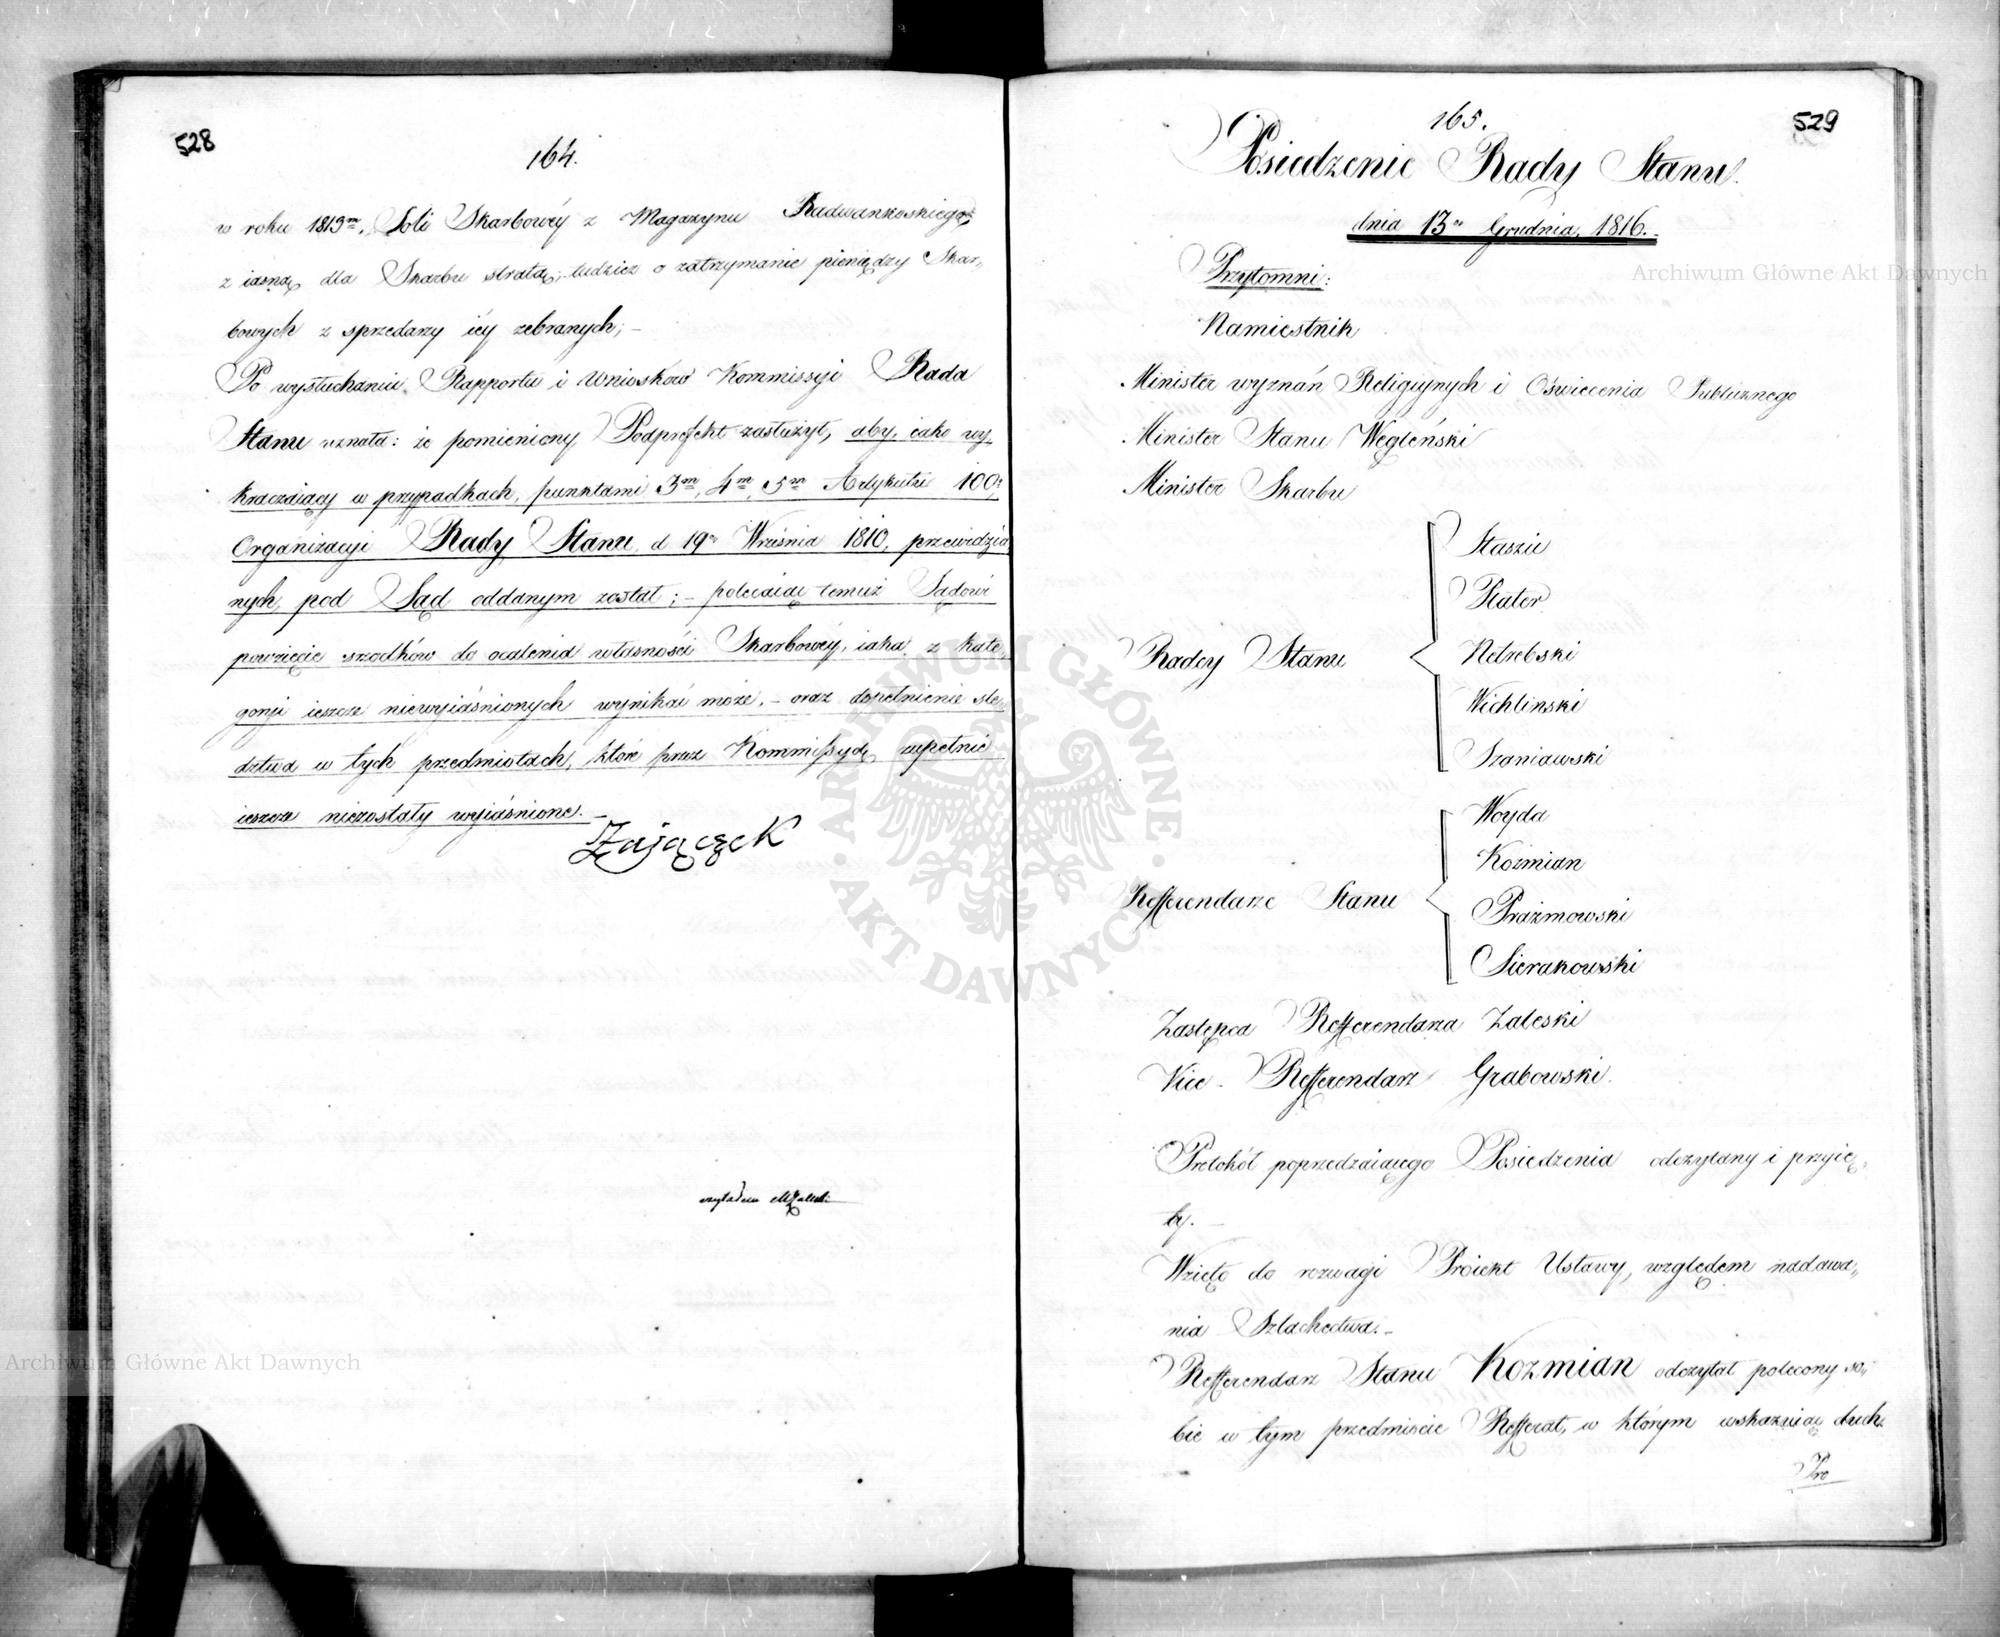 528
164.
w roku 1813m. Soli Skarbowéy z Magazynu Radwankoskiego,
z iasną dla Skarbu stratą; tudzież o zatrzymanie pieniędzy Skar„
bowych z sprzedaży iéy zebranych; –
Po wysłuchaniu Rapportu i Wniosków Kommissyi Rada
Stanu uznała: że pomieniony Podprefekt zasłużył, aby, iako wy„
kraczaiący w przypadkach, punktami 3m, 4m, 5m Artykułu 100,
Organizacyi Rady Stanu d 19 Września 1810, przewidzia
nych, pod Sąd oddanym został; – polecaiąc temuż Sądowi
powzięcie srzodków do ocalenia własności Skarbowéy, iaka z kate„
goryi ieszcze niewyiaśnionych wynikać może, – oraz dopełnienie śle„
dztwa w tych przedmiotach, które przez Kommissyą zupełnie
ieszcze niezostały wyiaśnione. –
Zajączek
czytałem
529
165.
Posiedzenie Rady Stanu.
dnia 13 Grudnia, 1816.
Przytomni:
Namiestnik
Minister wyznań Religiynych i Oświecenia Publicznego
Minister Stanu Węgleński
Minister Skarbu
Radcy Stanu
Staszic
Plater
Netrebski
Wichlinski
Szaniawski
Refferendarze Stanu
Woyda
Koźmian
Prażmowski
Sierakowski
Zastępca Refferendarza Zaleski
Vice-Refferendarz Grabowski.
Protokół poprzedzaiącego Posiedzenia odczytany i przyię„
ty. –
Wzięto do rozwagi Proiekt Ustawy, względem nadawa„
nia Szlachectwa. –
Refferendarz Stanu Kozmian odczytał polecony so„
bie w tym przedmiocie Refferat, w którym wskazuiąc duch
Pro
Archiwum Główne Akt Dawnych
Archiwum Główne Akt Dawnych
ARCHIWUM GŁÓWNE AKT DAWNYCH